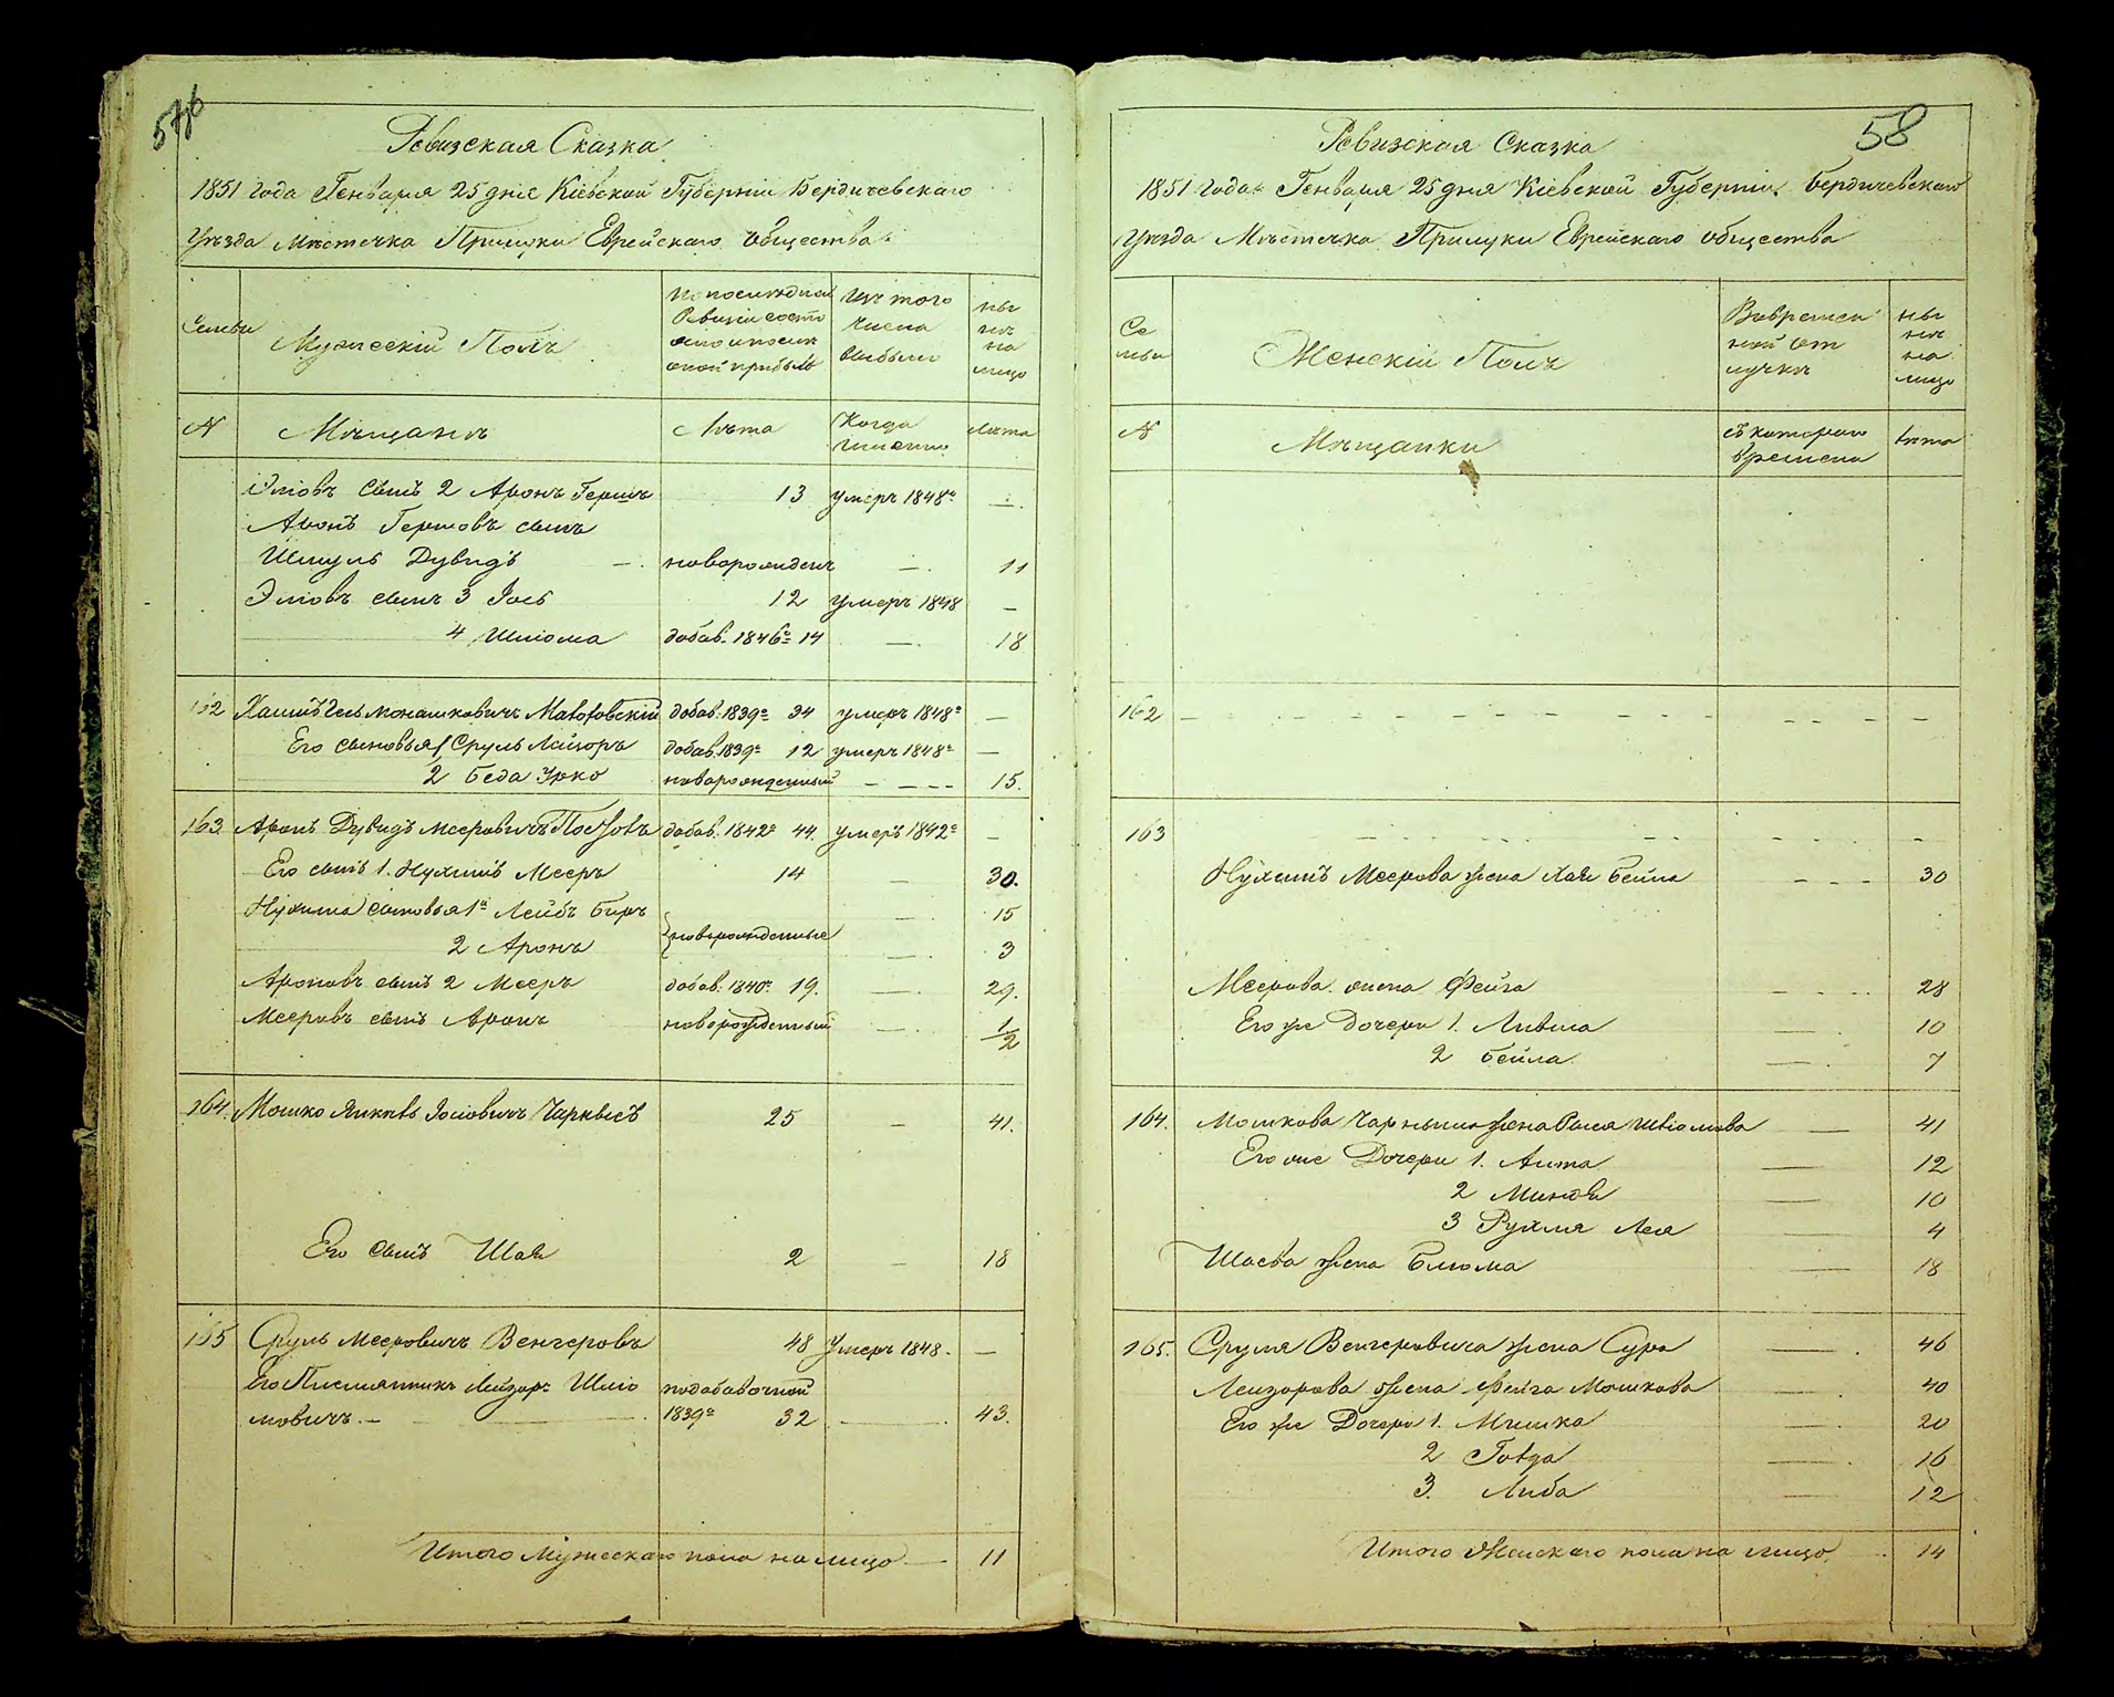 576
Ревизская Сказка
1851 года Генваря 25 дня Кіевской Губерніи Бердичевскаго
Уѣзда Мѣстечка Прилуки Еврейскаго Общества
Семьи
Мужескій Полъ
По последней
Ревизіи состо
яло и посли
оной прибыло
Изъ того
числа
выбыло
ны
нѣ
на
лицо
N
Мѣщанъ
Лѣта
Когда
именно
Лѣта
сынъ 2 Аронъ Гершъ 13 умеръ 1848 —
Аронъ Гершовъ сынъ
Шмуль Дувидъ — новорожденъ — 11
Эліовъ сынъ 3 Іось 12 умеръ 1848 —
4 Шлiома добав. 1846 14 — 18
162 добав. 1839 34 умеръ 1848 —
Его сыновья 1 Сруль Лайзоръ добав. 1839 12 умеръ 1848 —
2 Беда Урко новорожденный — 15.
163 Аронъ Дувидъ Мееровичъ добав. 1842 44. умеръ 1842 —
Его сынъ 1. Нухимъ Мееръ 14 — 30.
Нухима сыновья 1й Лейбъ Беръ — 15
новорожденные
2 Аронъ — 3
Ароновъ сынъ 2 Мееръ добав. 1840 19. — 29.
Мееровъ сынъ Аронъ новорожденный — 1/2
164. Мошко Янкель Іосіовичъ Чарныесъ 25 — 41.
Его сынъ Шая 2 — 18
165 Сруль Мееровичъ Венгеровъ 48 Умеръ 1848. —
Его Племянникъ Лейзоръ Шліо подобавочной
мовичъ. — 1839 32 — 43.
Итого Мужескаго пола на лицо — 11
58
Ревизская Сказка
1851 года Генваря 25 дня Кіевской Губерніи Бердичевскаго
Уѣзда Мѣстечка Прилуки Еврейскаго общества
Се
мьи
Женскій Полъ
Вовремен
ной от
лучкѣ
ны
нѣ
на
лицо
N
Мѣщанки
съ котораго
времени
Лѣта
162 — — —
163 — — —
Нухимъ Меерова жена Хая Бейла — 30
Меерова жена Фейга — 28
Его же Дочери 1. Ливша — 10
2 Бейла — 7
164. Мошкова жена Рыся Шліомова — 41
Его же Дочери 1. Аита — 12
2 Миндя — 10
3 Рухля Лея — 4
Шаева жена Блюма — 18
165. Сруля Венгеровича жена Сура — 46
Лейзорова жена Фейга Мошкова — 40
Его же Дочери 1. Мишка — 20
2 Голда — 16
3. Либа — 12
Итого Женскаго пола на лицо — 14